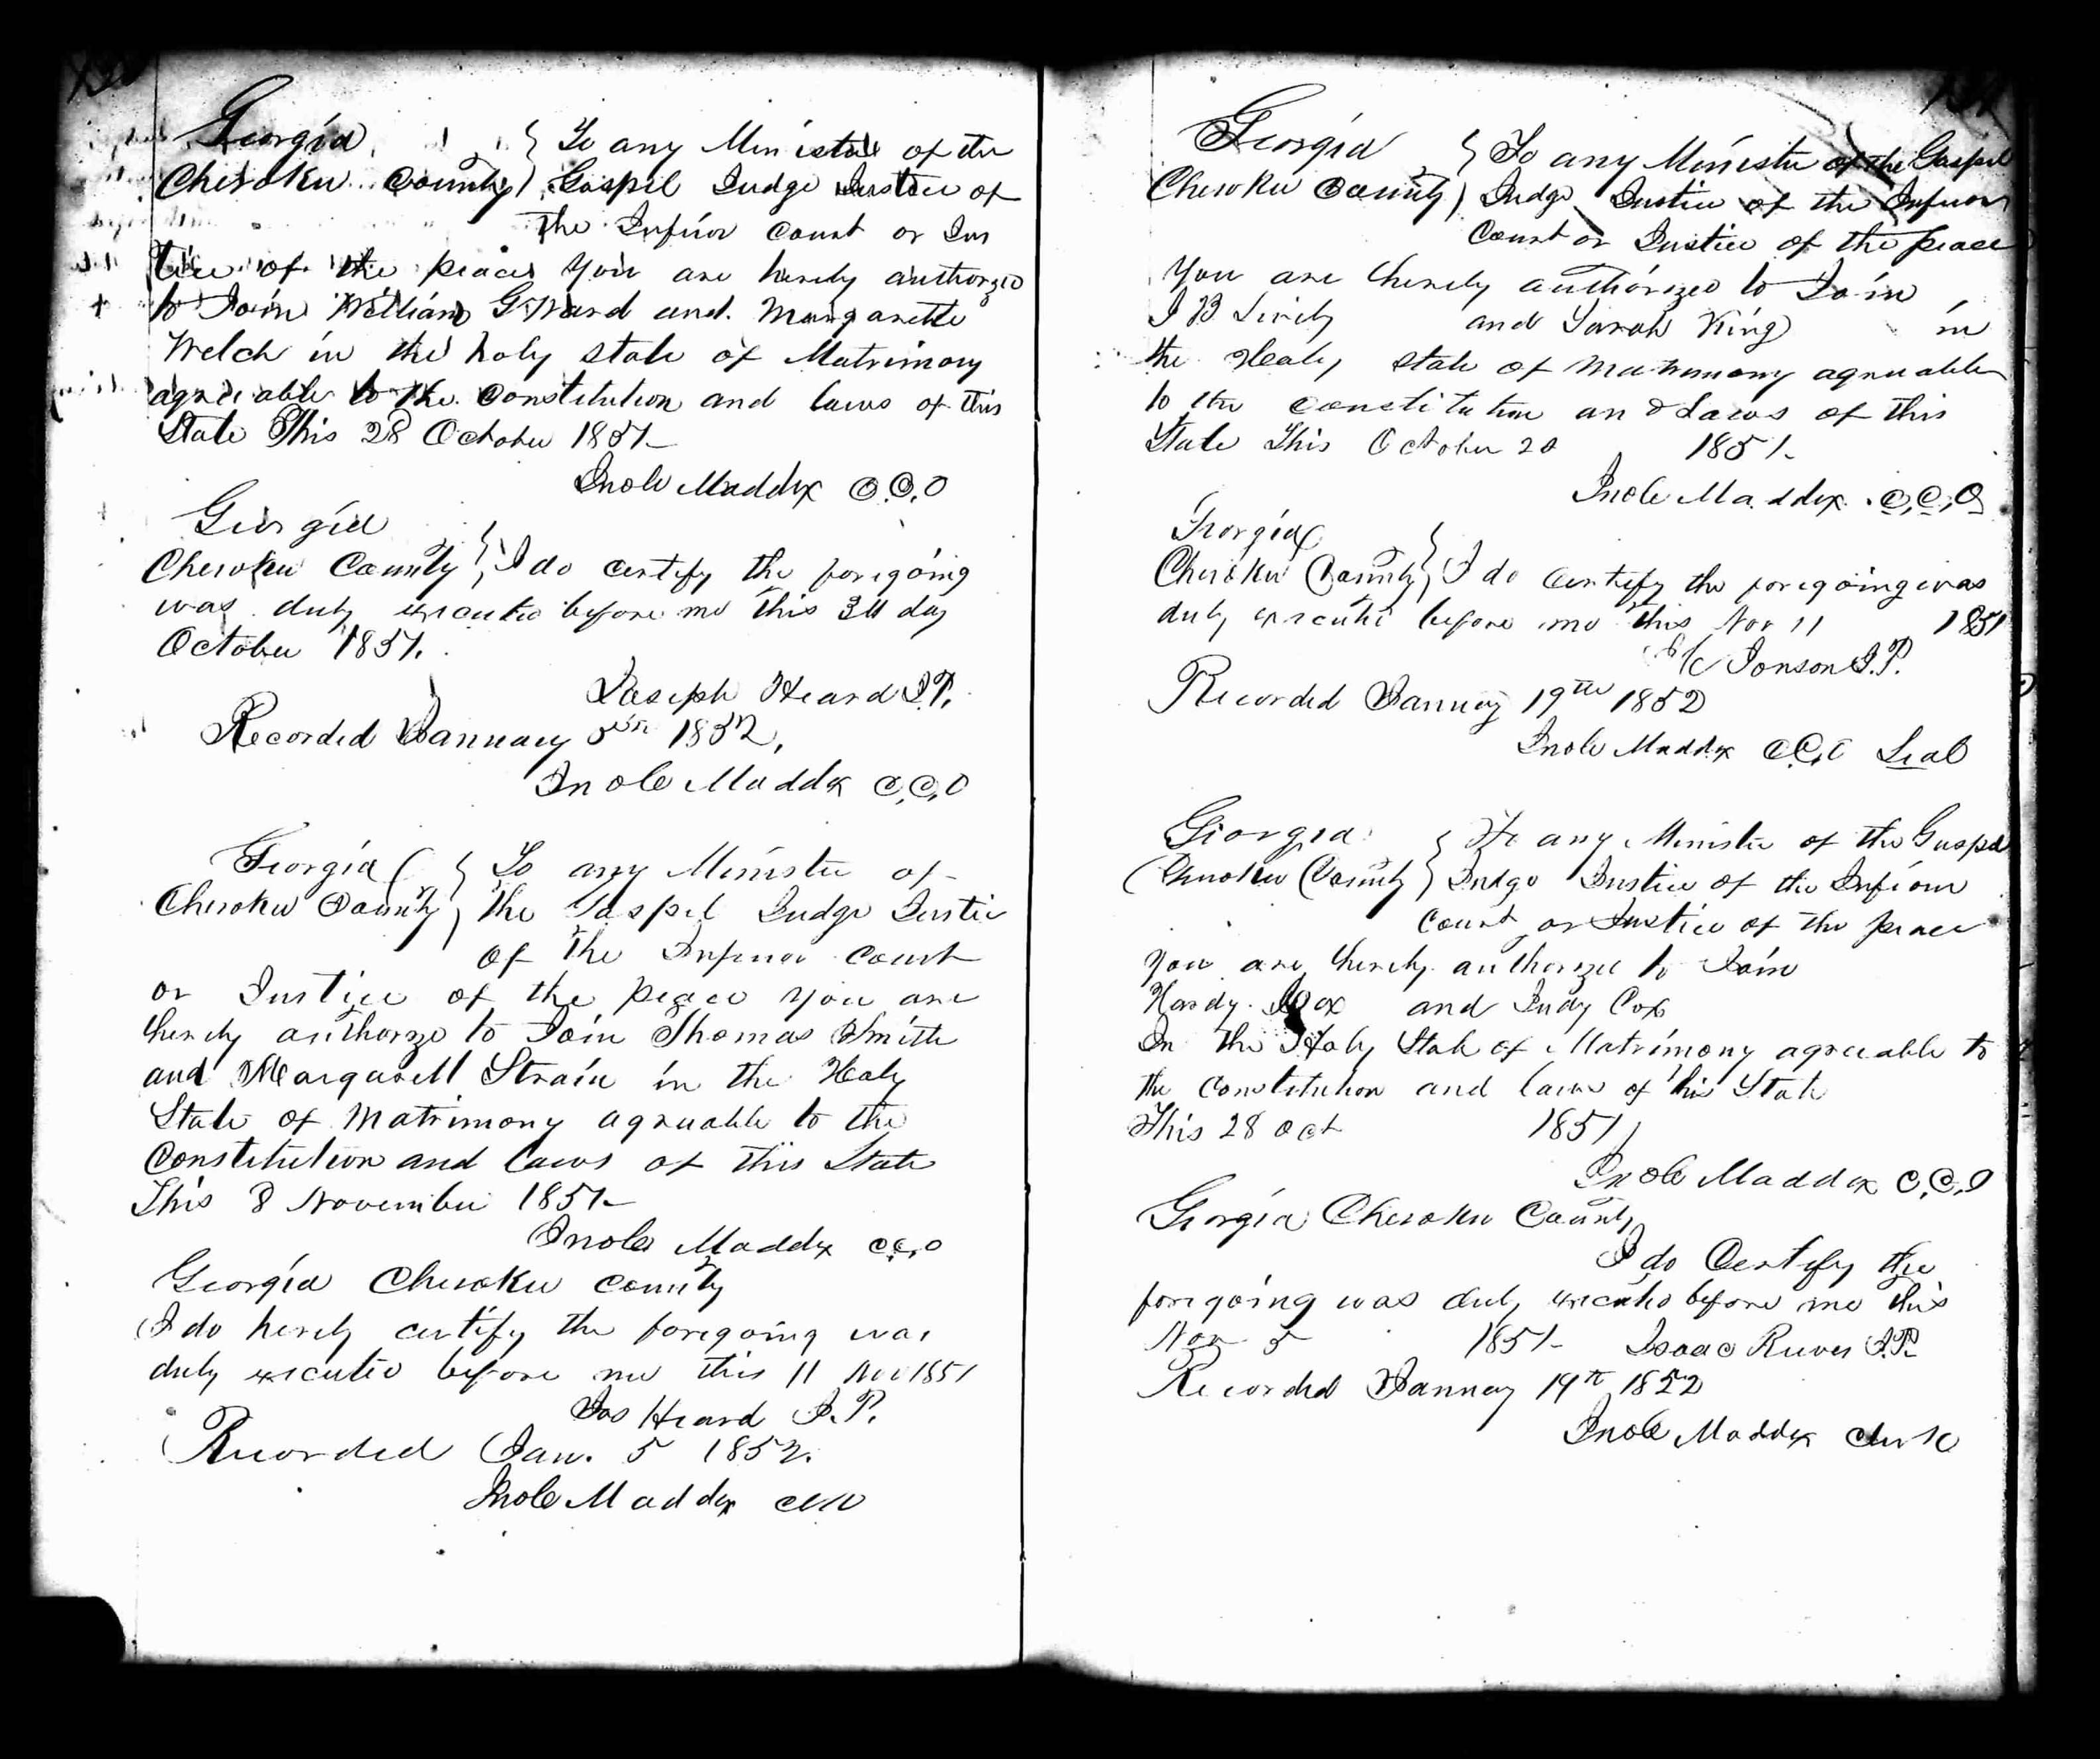 Georgia
Cheroku County } To any Minister of the
Gospel Judge Justice of
the Inferior Court or Jus
tice of the peace You are hereby authorized
to Join William G Ward and Margarette
Welch in the holy state of Matrimony
agreeable to the Constitution and laws of this
State This 28 October 1851
Jno le Maddox C.C.O
Georgia
Cheroku County } I do certify the foregoing
was duly executed before me this day
October 1851.
Joseph Heard J.P.
Recorded January 5th 1852.
Jno le Maddox C.C.O
Georgia
Cheroku County } To any Minister of
the Gospel Judge Justice
of the Inferior Court
or Justice of the peace You are
hereby authorize to Join Thomas Smith
and Margarett Strain in the Holy
State of Matrimony agreuable to the
Constitution and laws of this State
This 8 November 1851
Jno le Maddox C.C.O
Georgia Cheroku County
I do hereby certify the foregoing was
duly executed before me this 11 Nov 1851
Jos Heard J.P.
Recorded Jan. 5 1852.
Jno le Maddox Clk
Georgia
Cheroku County } To any Minister of the Gospel
Judge Justice of the Inferior
Court or Justice of the peace
You are hereby authorized to Join
J B Lively and Sarah King in
the Holy state of matrimony agreuable
to the Constitution and Laws of this
State This October 20 1851
Jno le Maddox C.C.O
Georgia
Cheroku County } I do certify the foregoing was
duly executed before me this Nov 11 1851
Jonson J.P.
Recorded January 19th 1852
Jno le Maddox C.C.O Seal
Georgia
Cheroku County } To any Minister of the Gospel
Judge Justice of the Inferior
Court or Justice of the peace
You are hereby authorized to Join
Hardy and Judy Cox
In the Holy State of Matrimony agreeable to
the Constitution and laws of this State
This 28 Oct 1851
Jno le Maddox C.C.O
Georgia Cheroku County
I do Certify the
foregoing was duly executed before me this
Nov 5 1851 Isaac Reeves J.P.
Recorded January 19th 1852
Jno le Maddox Clerk